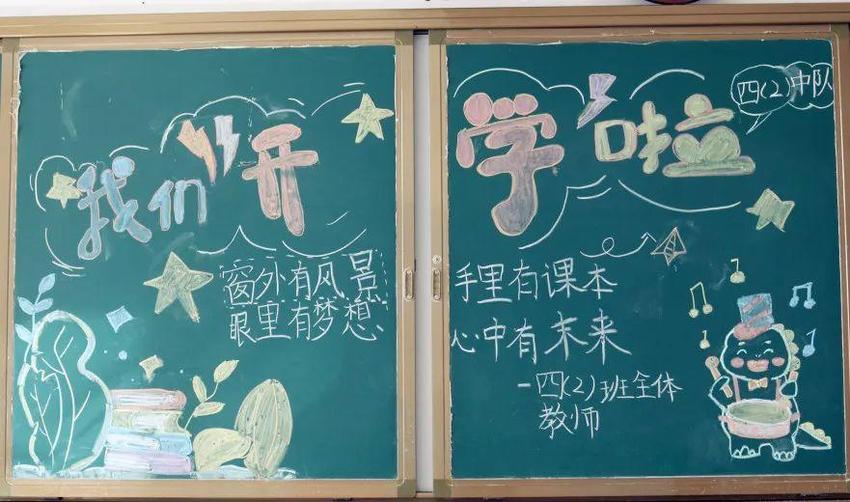 我们开学啦
四(2)中队
窗外有风景
眼里有梦想
手里有课本
心中有末来
-四(2)班全体
教师